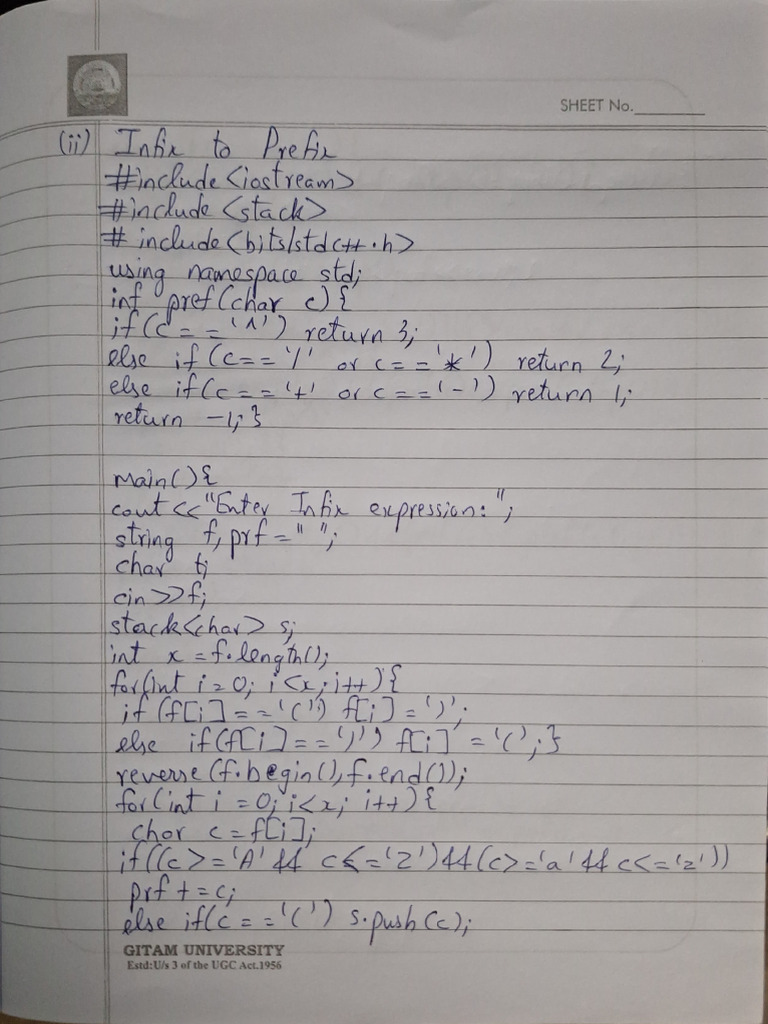 SHEET No.
(ii) Infix to Prefix
#include<iostream>
#include <stack>
# include<bits/stdc++.h>
using namespace std;
int pref(char c){
if(c=='^') return 3;
else if(c=='/' or c=='*') return 2;
else if(c=='+' or c=='-') return 1;
return -1;}
main(){
cout<<"Enter Infix expression:";
string f,prf=" ";
char t;
cin>>f;
stack<char> s;
int x=f.length();
for(int i=0; i<x;i++){
if(f[i]=='(') f[i]=')';
else if(f[i]==')') f[i]='(';}
reverse(f.begin(),f.end());
for(int i=0;i<x; i++){
char c=f[i];
if((c>='A' && c<='Z')&&(c>='a' && c<='z'))
prf+=c;
else if(c=='(') s.push(c);
GITAM UNIVERSITY
Estd:U/s 3 of the UGC Act.1956